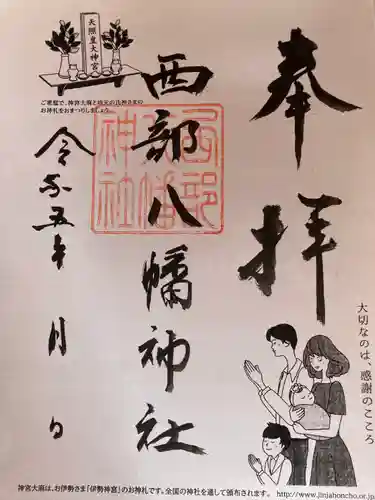 奉拝
西部八幡神社
西部八幡神社
令和五年 月 日
天照皇大神宮
ご家庭で、神宮大麻と地元の氏神さまの
お神札をおまつりしましょう。
大切なのは、感謝のこころ
http://www.jinjahoncho.or.jp
神宮大麻は、お伊勢さま「伊勢神宮」のお神札です。全国の神社を通して頒布されます。